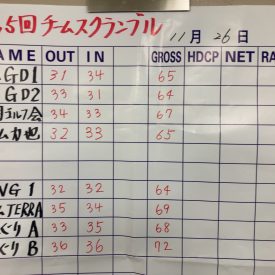 5回 チームスクランブル 11月26日
NAME OUT IN GROSS HDCP NET RA
GD1 31 34 65
GD2 33 31 64
ゴルフ会 34 33 67
力也 32 33 65
NG 1 32 32 64
TERRA 35 34 69
ぐり A 33 35 68
ぐり B 36 36 72